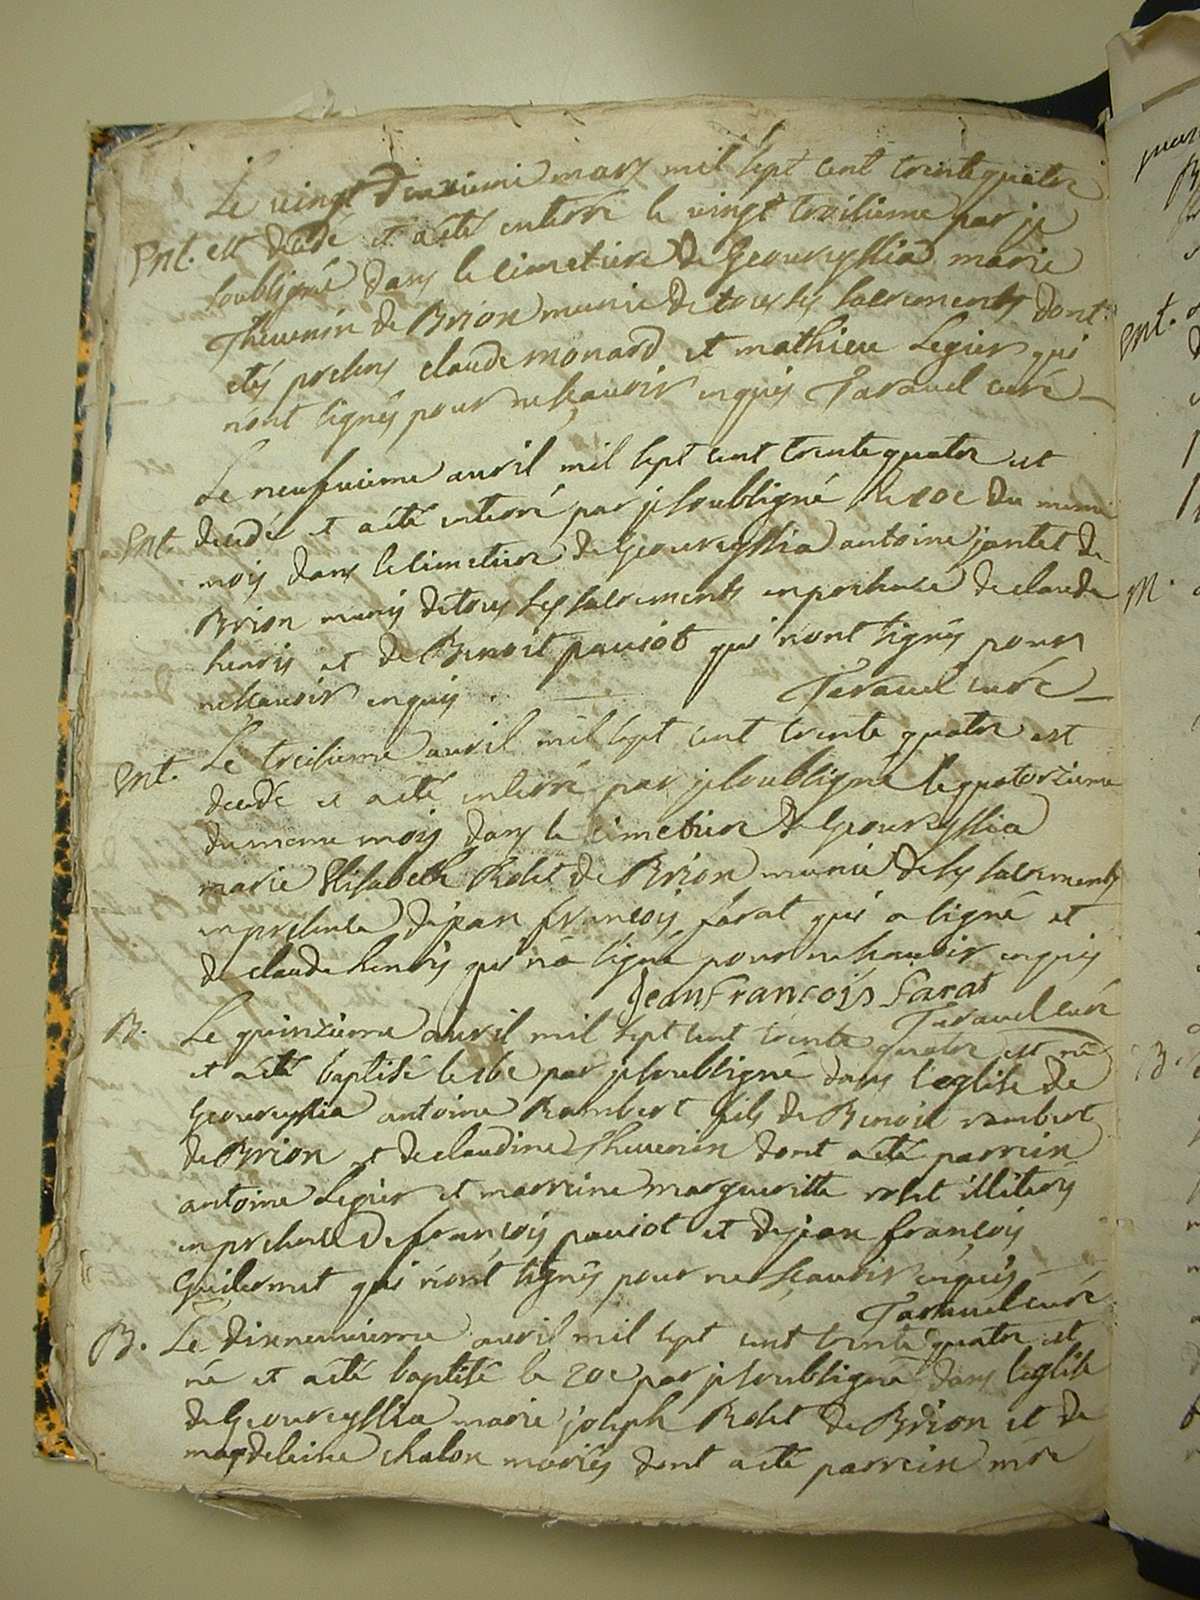 Le vingt deuxieme mars mil sept cent trente quatre
Ent. est decedé et a eté enterré le vingt troisieme par je
soubsigné dans le cimetiere de Geovreyssia marie
Thevenin de Brion munie de tous ses sacrements dont
etés presens claude monard et mathieu Legier qui
n'ont signés pour ne scavoir enquis Taravel curé
Le neufvieme avril mil sept cent trente quatre est
Ent. decedé et a eté enterré par je soubsigné le 10e du meme
mois dans le cimetiere de Geovreyssia antoine jantet de
Brion munis de tous ses sacrements en presence de claude
henris et de Benoit pauiot qui n'ont signés pour
ne scavoir enquis. Taravel curé
Ent. Le treisieme avril mil sept cent trente quatre est
decedé et a eté enterré par je soubsigné le quatorzieme
du meme mois dans le cimetiere de Geovreyssia
marie Elisabeth Rolet de Brion munie de ses sacrements
en presence de jean françois farat qui a signé et
de claude henris qui n'a signé pour ne scavoir enquis
Jean François farat
Taravel curé
B. Le quinzieme avril mil sept cent trente quatre est né
et a eté baptisé le 16e par je soubsigné dans l'eglise de
Geovreyssia antoine Rambert fils de Benoit rambert
de Brion et de claudine Thevenin dont a eté parrein
antoine Legier et marreine margueritte rolet illiterés
en presence de françois pauiot et de jean françois
Guilermet qui n'ont signés pour ne scavoir enquis
Taravel curé
B. Le dixneuvieme avril mil sept cent trente quatre est
né et a eté baptisé le 20e par je soubsigné dans l'eglise
de Geovreyssia marie joseph Rolet de Brion et de
magdeleine chalon mariés dont a eté parrein mre
Ent.
M.
B.